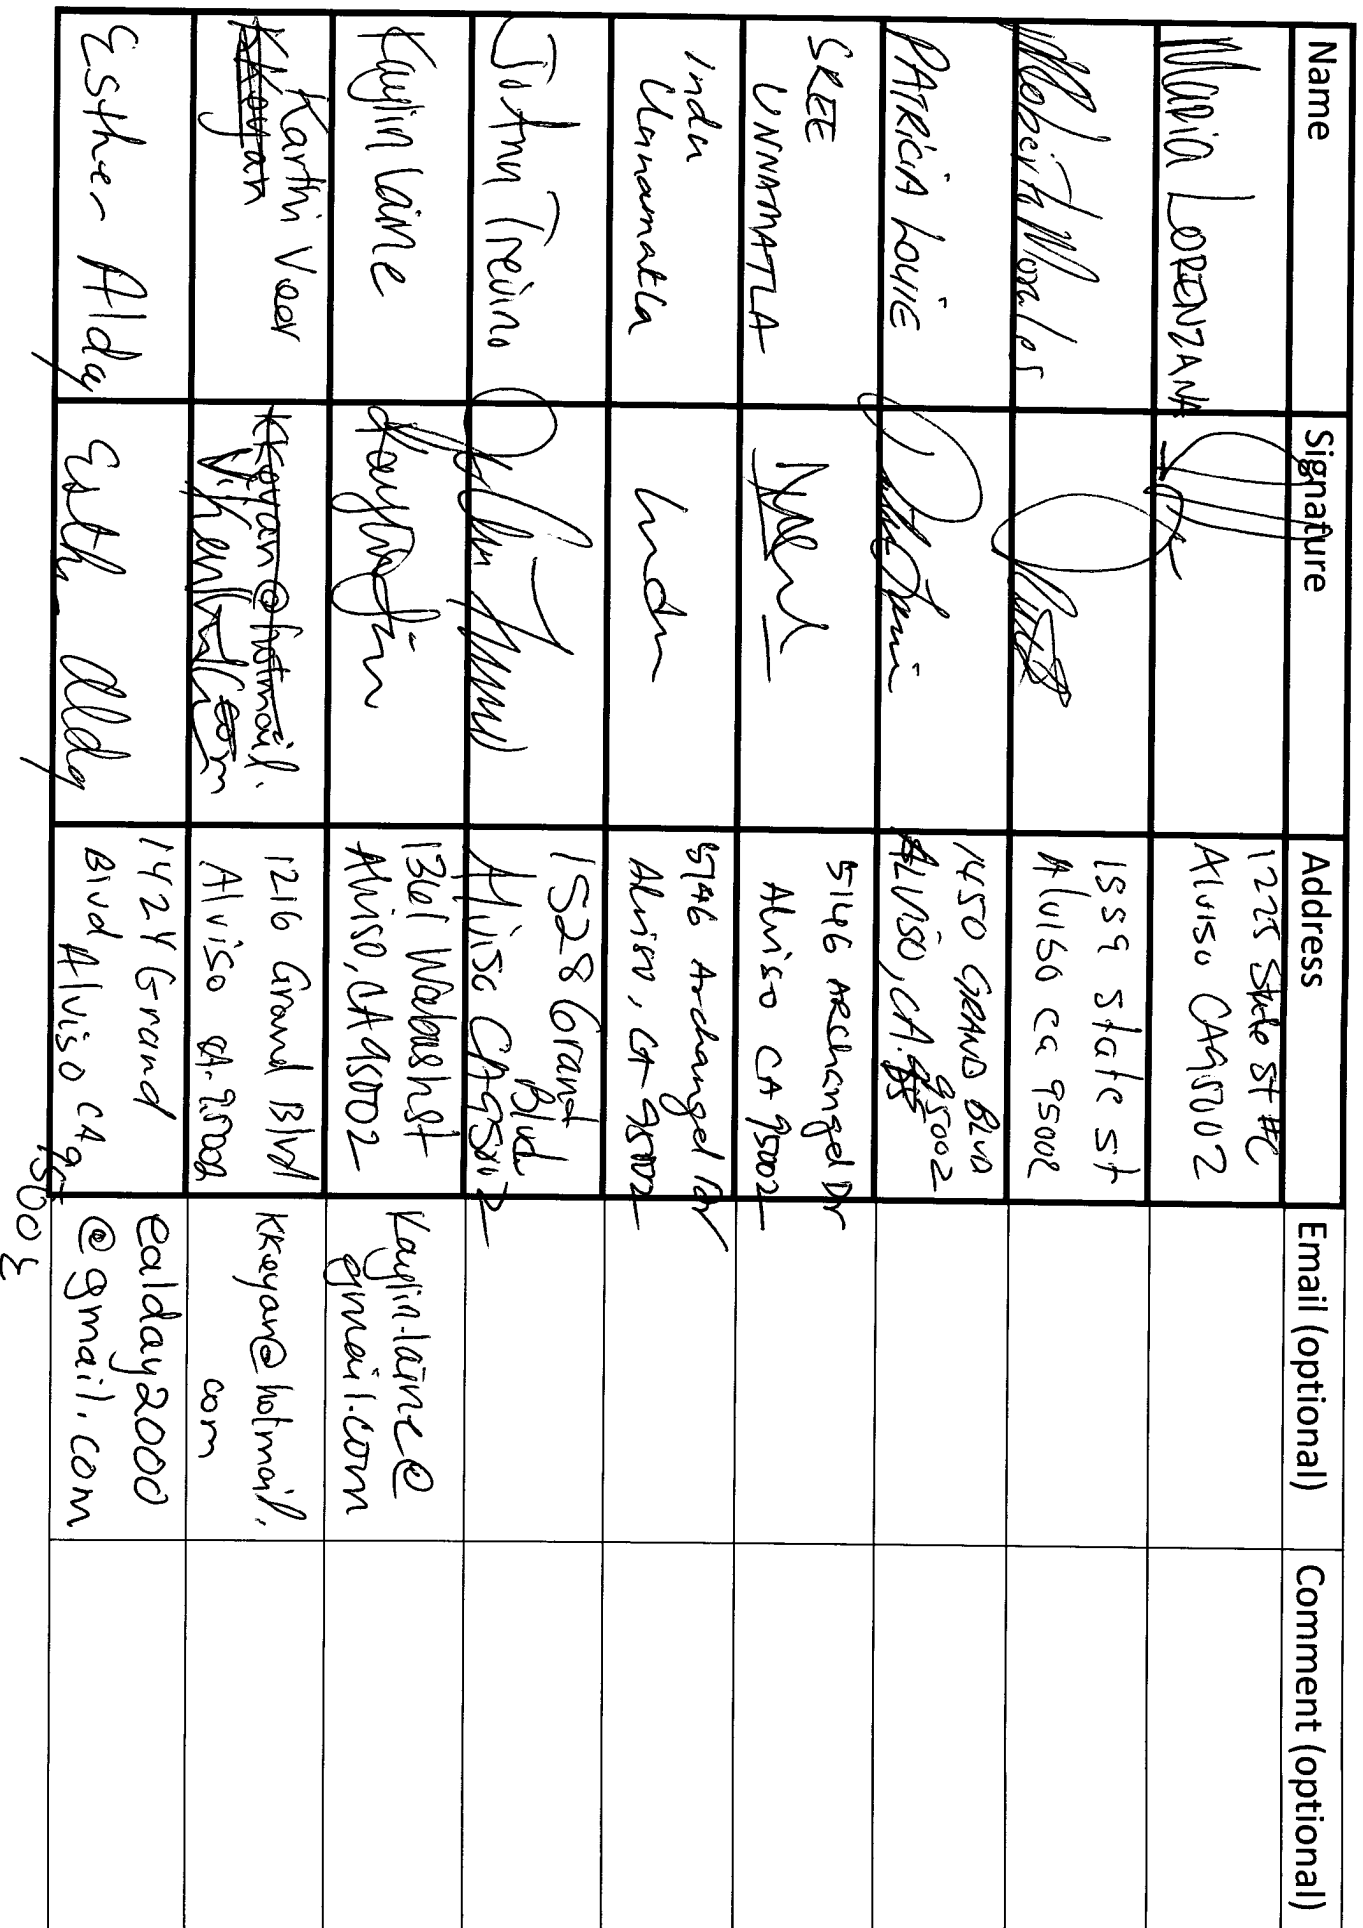 Name Signature Address Email (optional) Comment (optional)
Maria LORENZANA
1225 State St #C
Alviso CA 95002
Morales
1559 State st
Alviso ca 95002
PATRICIA LOUIE
1450 GRAND BLVD
ALVISO, CA. 95002
SREE
UNNAMATLA
5146 Archangel Dr
Alviso CA 95002
Indu
Unnamatla
Indu
5146 Archangel Dr
Alviso, CA 95002
John Trevino
1528 Grand
Blvd
Alviso CA 95002
Kaylin Laine
1361 Wabash st
Alviso, CA 95002
Kaylin.laine@
gmail.com
Karthi Veer
KKeyan
KKeyan@hotmail.
com
1216 Grand Blvd
Alviso CA. 95002
KKeyan@hotmail.
com
Esther Alday
Esth Alday
1424 Grand
Blvd Alviso CA
95002
ealday2000
@gmail.com